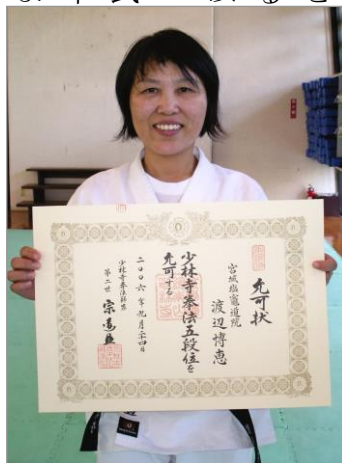 允可状
宮城塩竈道院
渡辺博恵
少林寺拳法五段位を
允可する
二〇〇六年九月二四日
少林寺拳法師家
第二世 宗道臣